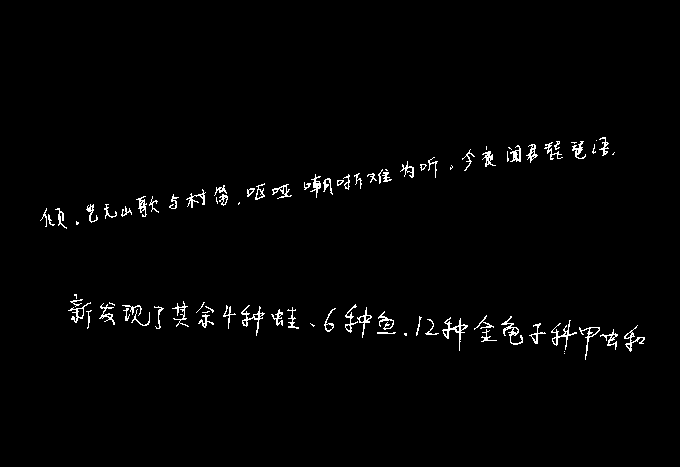 倾。岂无山歌与村笛，呕哑嘲哳难为听。今夜闻君琵琶语，
新发现了其余4种蛙、6种鱼，12种金龟子科甲虫和